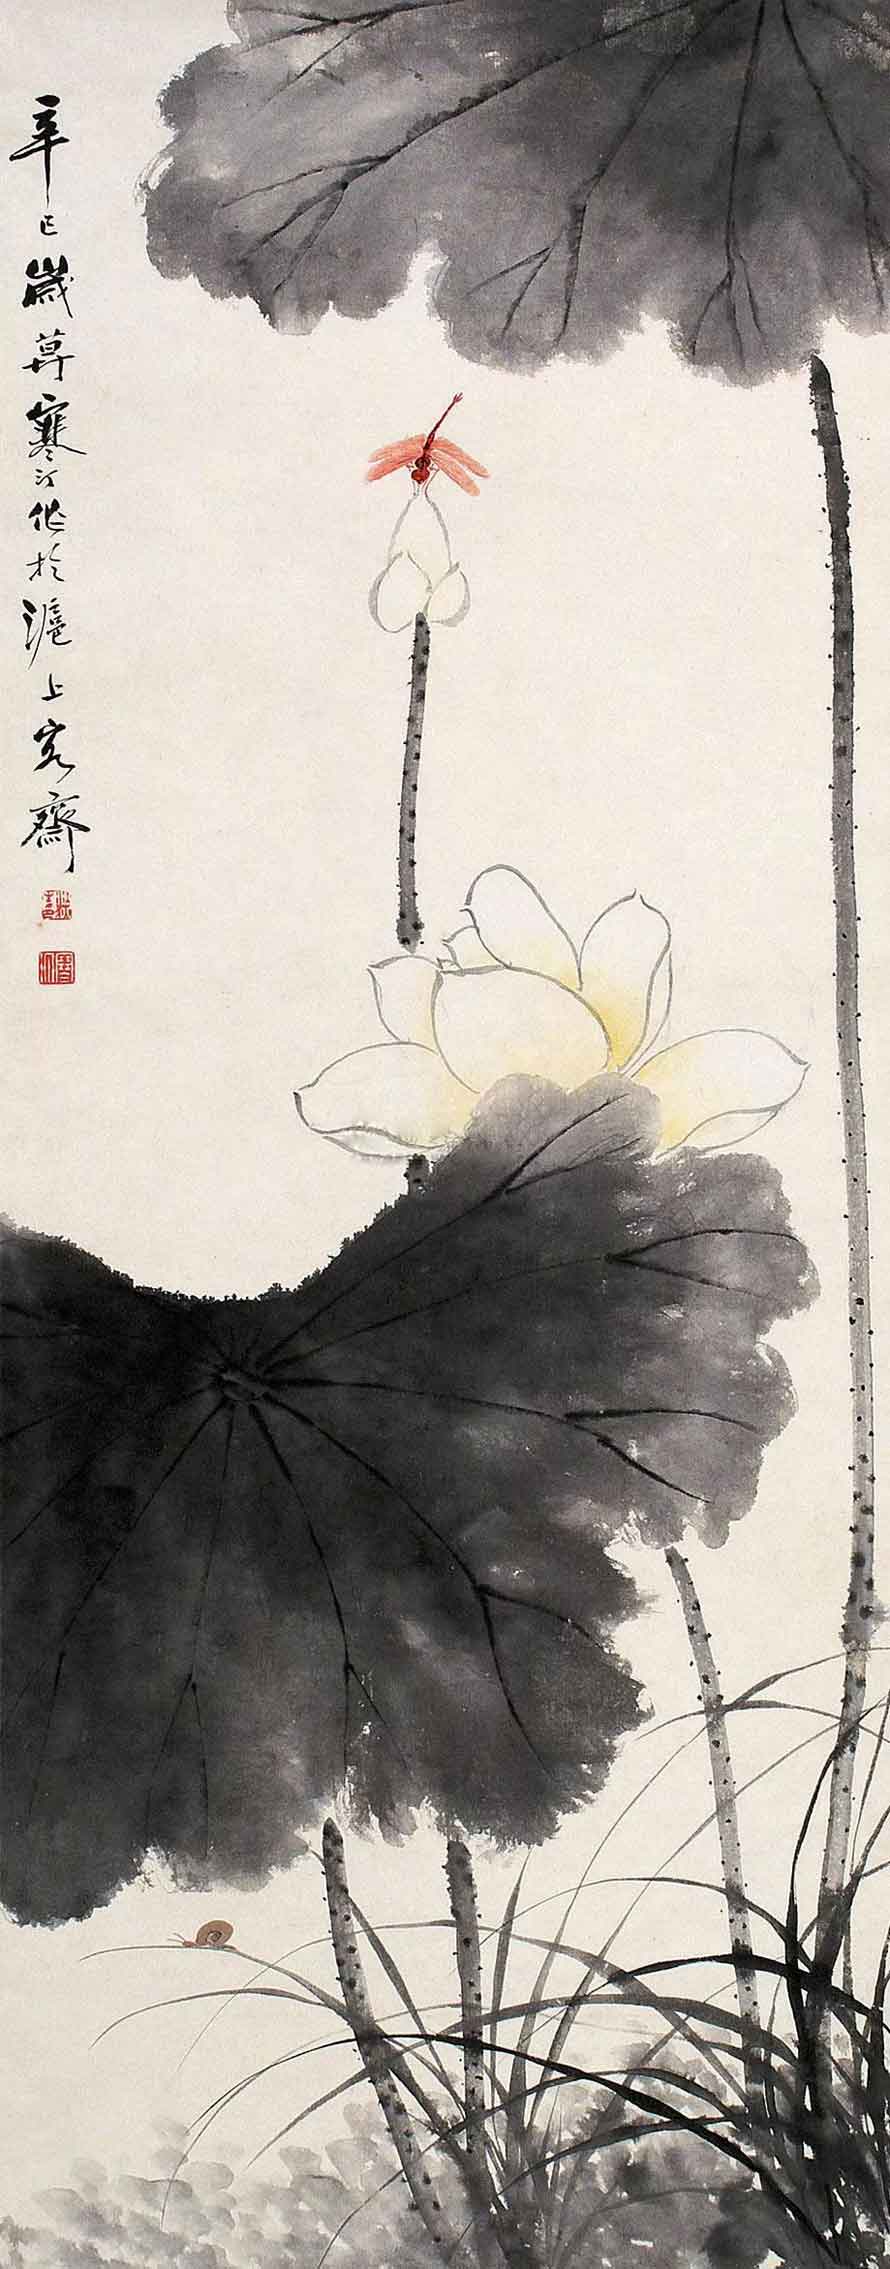 辛巳歲莫寒汀作於滬上客齋